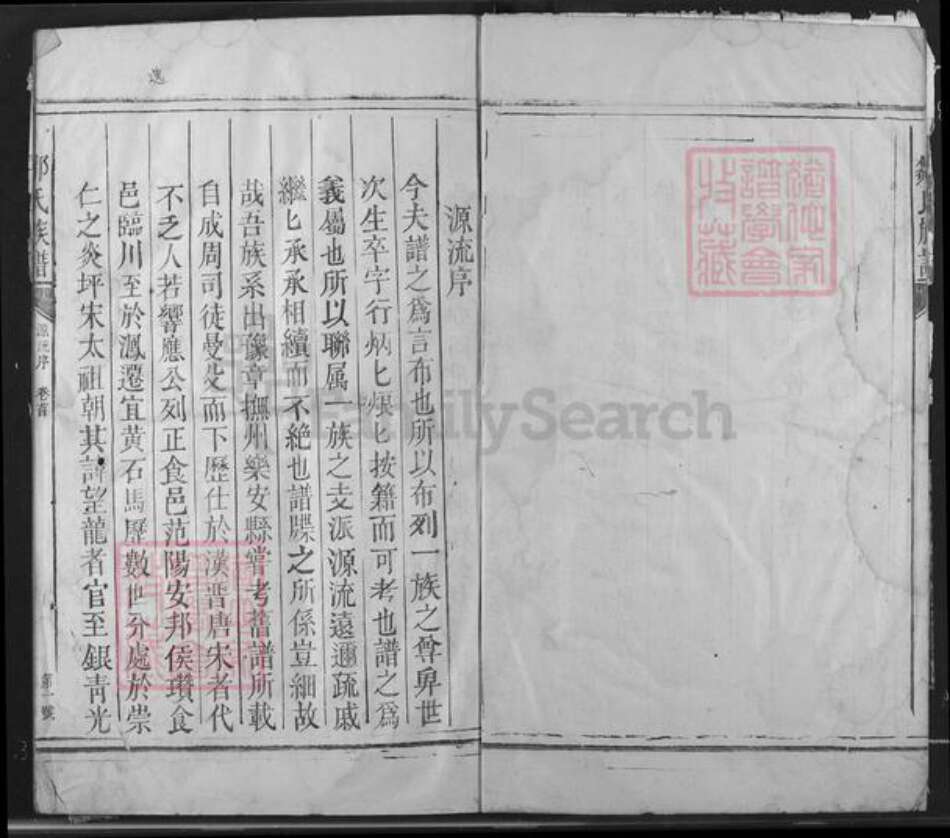 源流序
今夫譜之爲言布也所以布列一族之尊畀世
次生卒字行炳匕焜匕按籍而可考也譜之爲
義屬也所以聯属一族之支派源流遠邇疏戚
繼匕承承相續而不絶也譜牒之所係豈細故
哉吾族系出豫章撫州樂安縣嘗考舊譜所載
自成周司徒曼殳而下歷仕於漢晋唐宋者代
不乏人若響應公列正食邑范陽安邦侯瓚食
邑臨川至於渢遷宜黄石馬歷數世分處於崇
仁之炎坪宋太祖朝其諱望龍者官至銀青光
氏族譜
源流序 卷首
第一號
FamilySearch